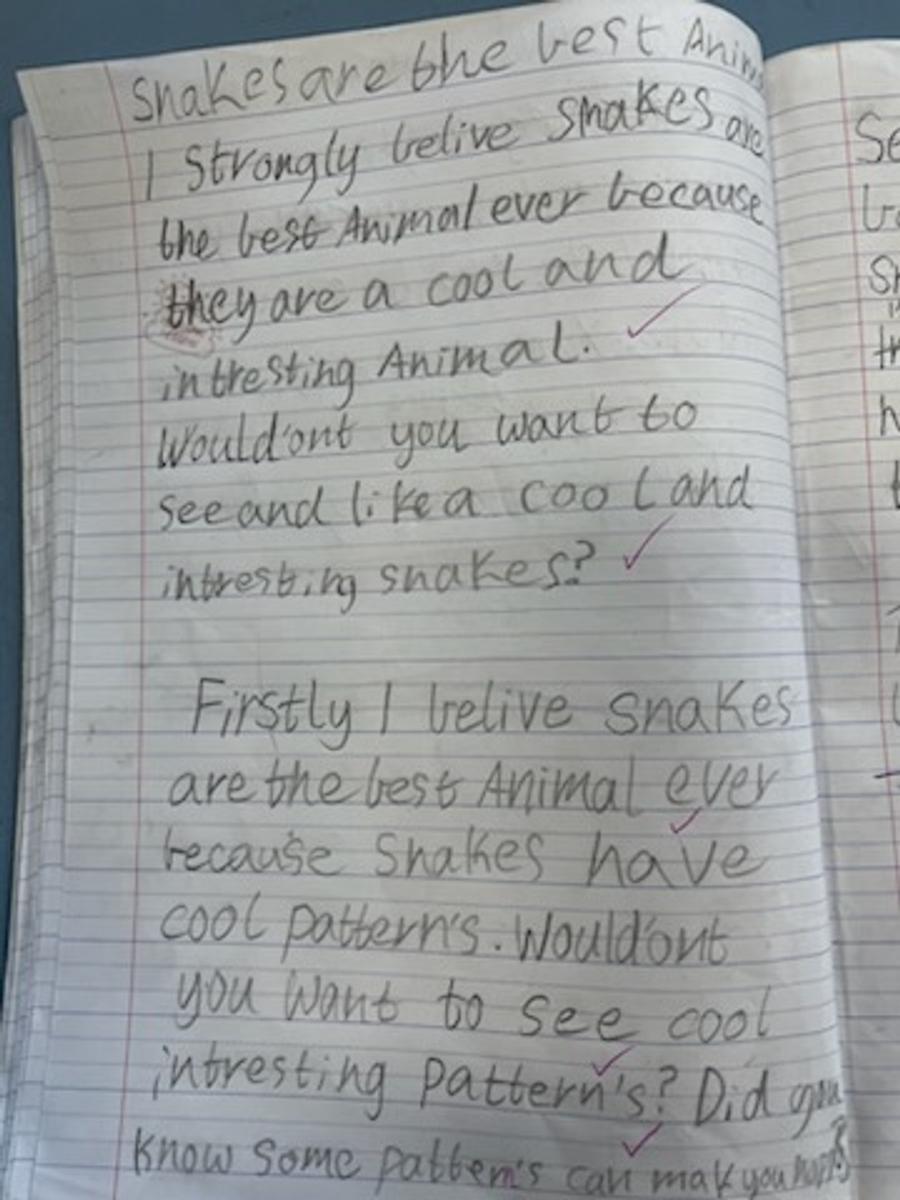 Snakes are the best Anim
I Strongly belive snakes are
the best Animal ever because
they are a cool and
intresting Animal.
Would'ont you want to
see and like a cool and
intresting snakes?
Firstly I belive snakes
are the best Animal ever
because Snakes have
cool pattern's. Would'ont
you want to see cool
intresting pattern's? Did you
know some pattern's can mak you
Se
tr